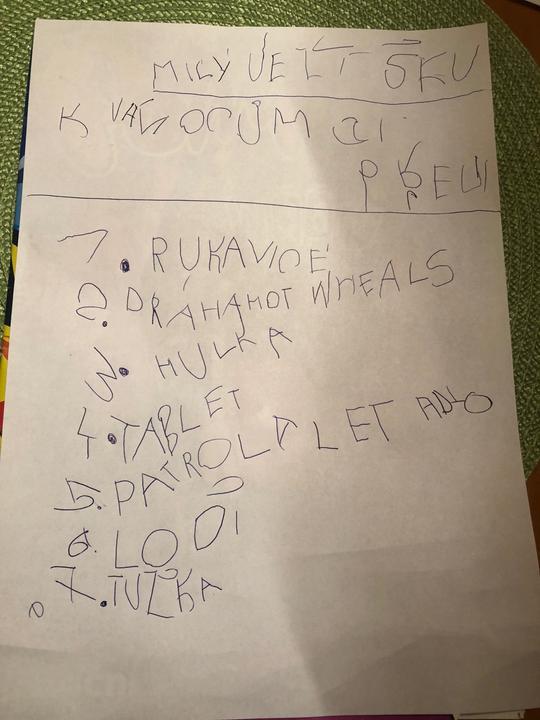 MILÝ JEŽÍŠKU
K VÁNOCŮM SI
PŘEJI
1. RUKAVICE
2. DRAHAHOT WHEALS
3. HULKA
4. TABLET
5. PATROLP LET ADLO
6. LOĎ
7. TUŽKA